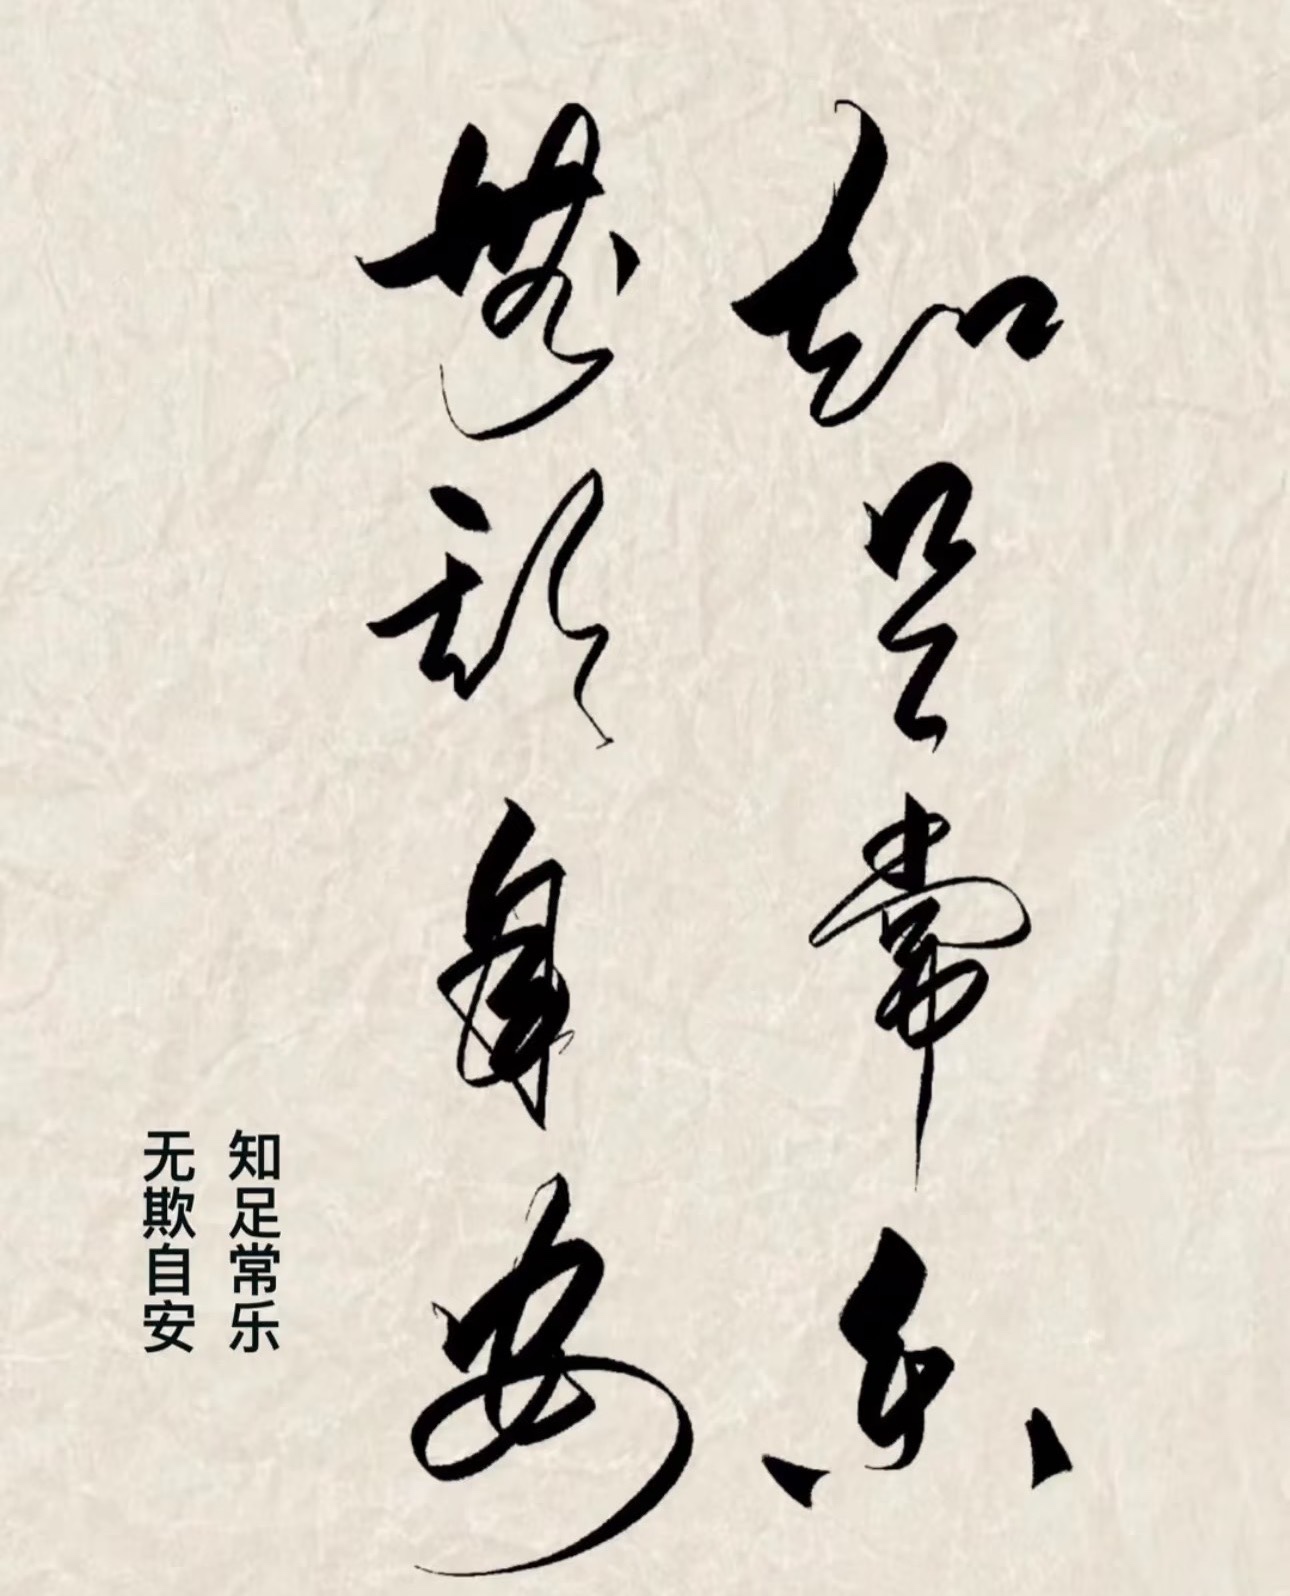 知足常乐
無欺自安
知足常乐
无欺自安